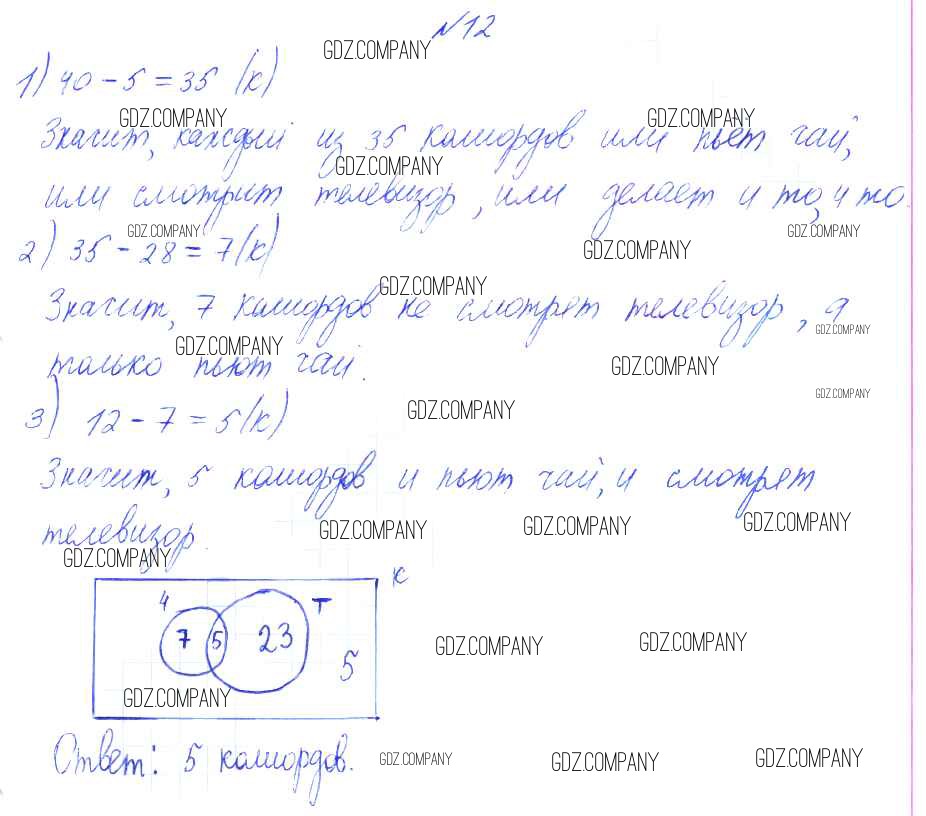 №12
GDZ.COMPANY
1) 40 - 5 = 35 (к)
GDZ.COMPANY GDZ.COMPANY
Значит, каждый из 35 кашордов или пьёт чай,
GDZ.COMPANY
или смотрит телевизор, или делает и то, и то.
GDZ.COMPANY GDZ.COMPANY
2) 35 - 28 = 7 (к)
GDZ.COMPANY
GDZ.COMPANY
Значит, 7 кашордов не смотрят телевизор, а
GDZ.COMPANY
GDZ.COMPANY
только пьют чай.
GDZ.COMPANY
GDZ.COMPANY
3) 12 - 7 = 5 (к)
GDZ.COMPANY
Значит, 5 кашордов и пьют чай, и смотрят
GDZ.COMPANY GDZ.COMPANY GDZ.COMPANY
телевизор.
GDZ.COMPANY
К
Ч Т
7 5 23
5
GDZ.COMPANY GDZ.COMPANY
GDZ.COMPANY
Ответ: 5 кашордов.
GDZ.COMPANY GDZ.COMPANY GDZ.COMPANY